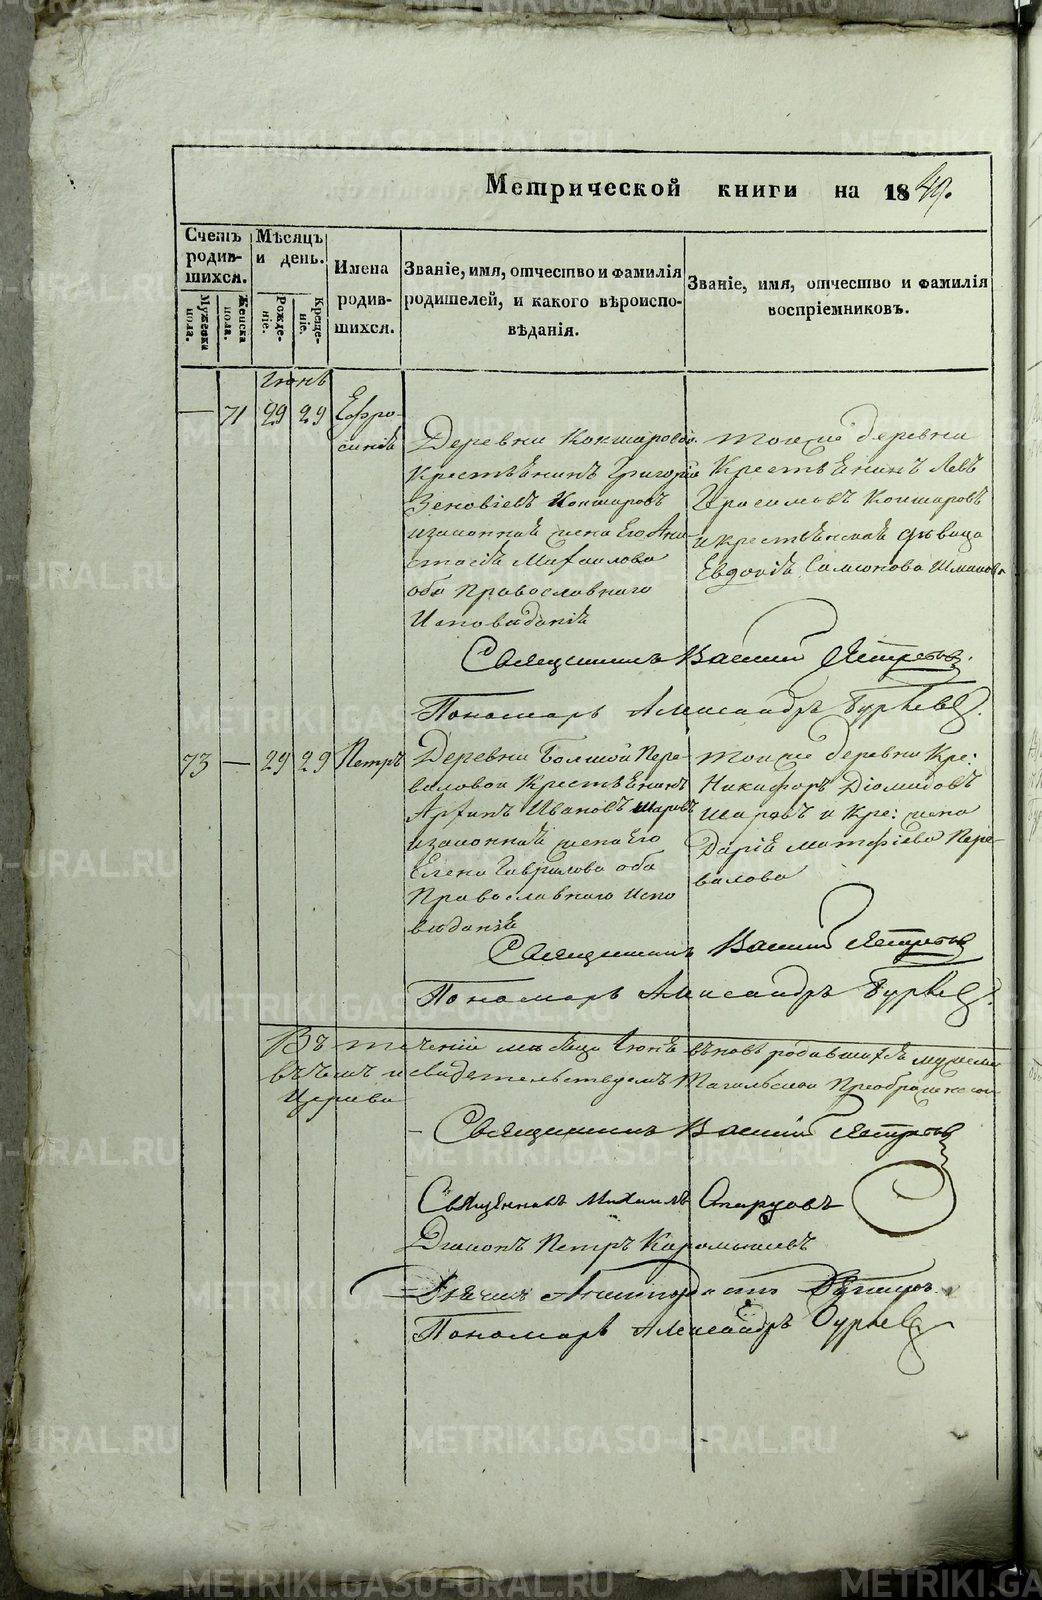 Метрической книги на 1849.
Счетъ родившихся.
Мѣсяцъ и день.
Имена родившихся.
Званіе, имя, отчество и фамилія родителей, и какого вѣроисповѣданія.
Званіе, имя, отчество и фамилія воспріемниковъ.
Мужеска пола.
Женска пола.
Рождепіе.
Крещеніе.
Іюнь
— 71 29 29 Ефро-
синія
Деревни Кокшаровой
Крестьянинъ Григорій
Зеновіевъ Кокшаровъ
и законная жена Его Ана-
стасія Михайлова
оба Православнаго
Исповѣданія
тойже деревни
Крестьянинъ Левъ
Герасимовъ Кокшаровъ
и крестьянская дѣвица
Евдокія Самсонова
Священникъ Василий
Пономарь Александръ Гурьевъ
73 — 29 29 Петръ
Деревни Большой Пере-
валовой Крестьянинъ
Архипъ Ивановъ Шаровъ
и законная жена Его
Елена Гаврилова оба
Православнаго Испо
вѣданія
тойже деревни Кре:
Никифоръ Діомидовъ
Шаровъ и Кре: жена
Дарія Матфіева Пере-
валова
Священникъ Василий
Пономарь Александръ Гурьев
Въ теченіи мѣсяца Іюня вновь родившихся
въ чемъ и свидетельствуемъ Тагильской Преображенской
Церкви
Священникъ Василий
Священникъ Михаилъ
Діаконъ Петръ Карамышевъ
Дьячекъ
Пономарь Александръ Гурьев
METRIKI.GASO-URAL.RU